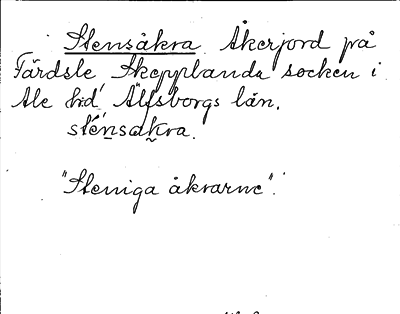 Stensåkra Åkerjord på
Färdsle Skepplanda socken i
Ale hd Älfsborgs län.
sténsakra.
"Steniga åkrarne".